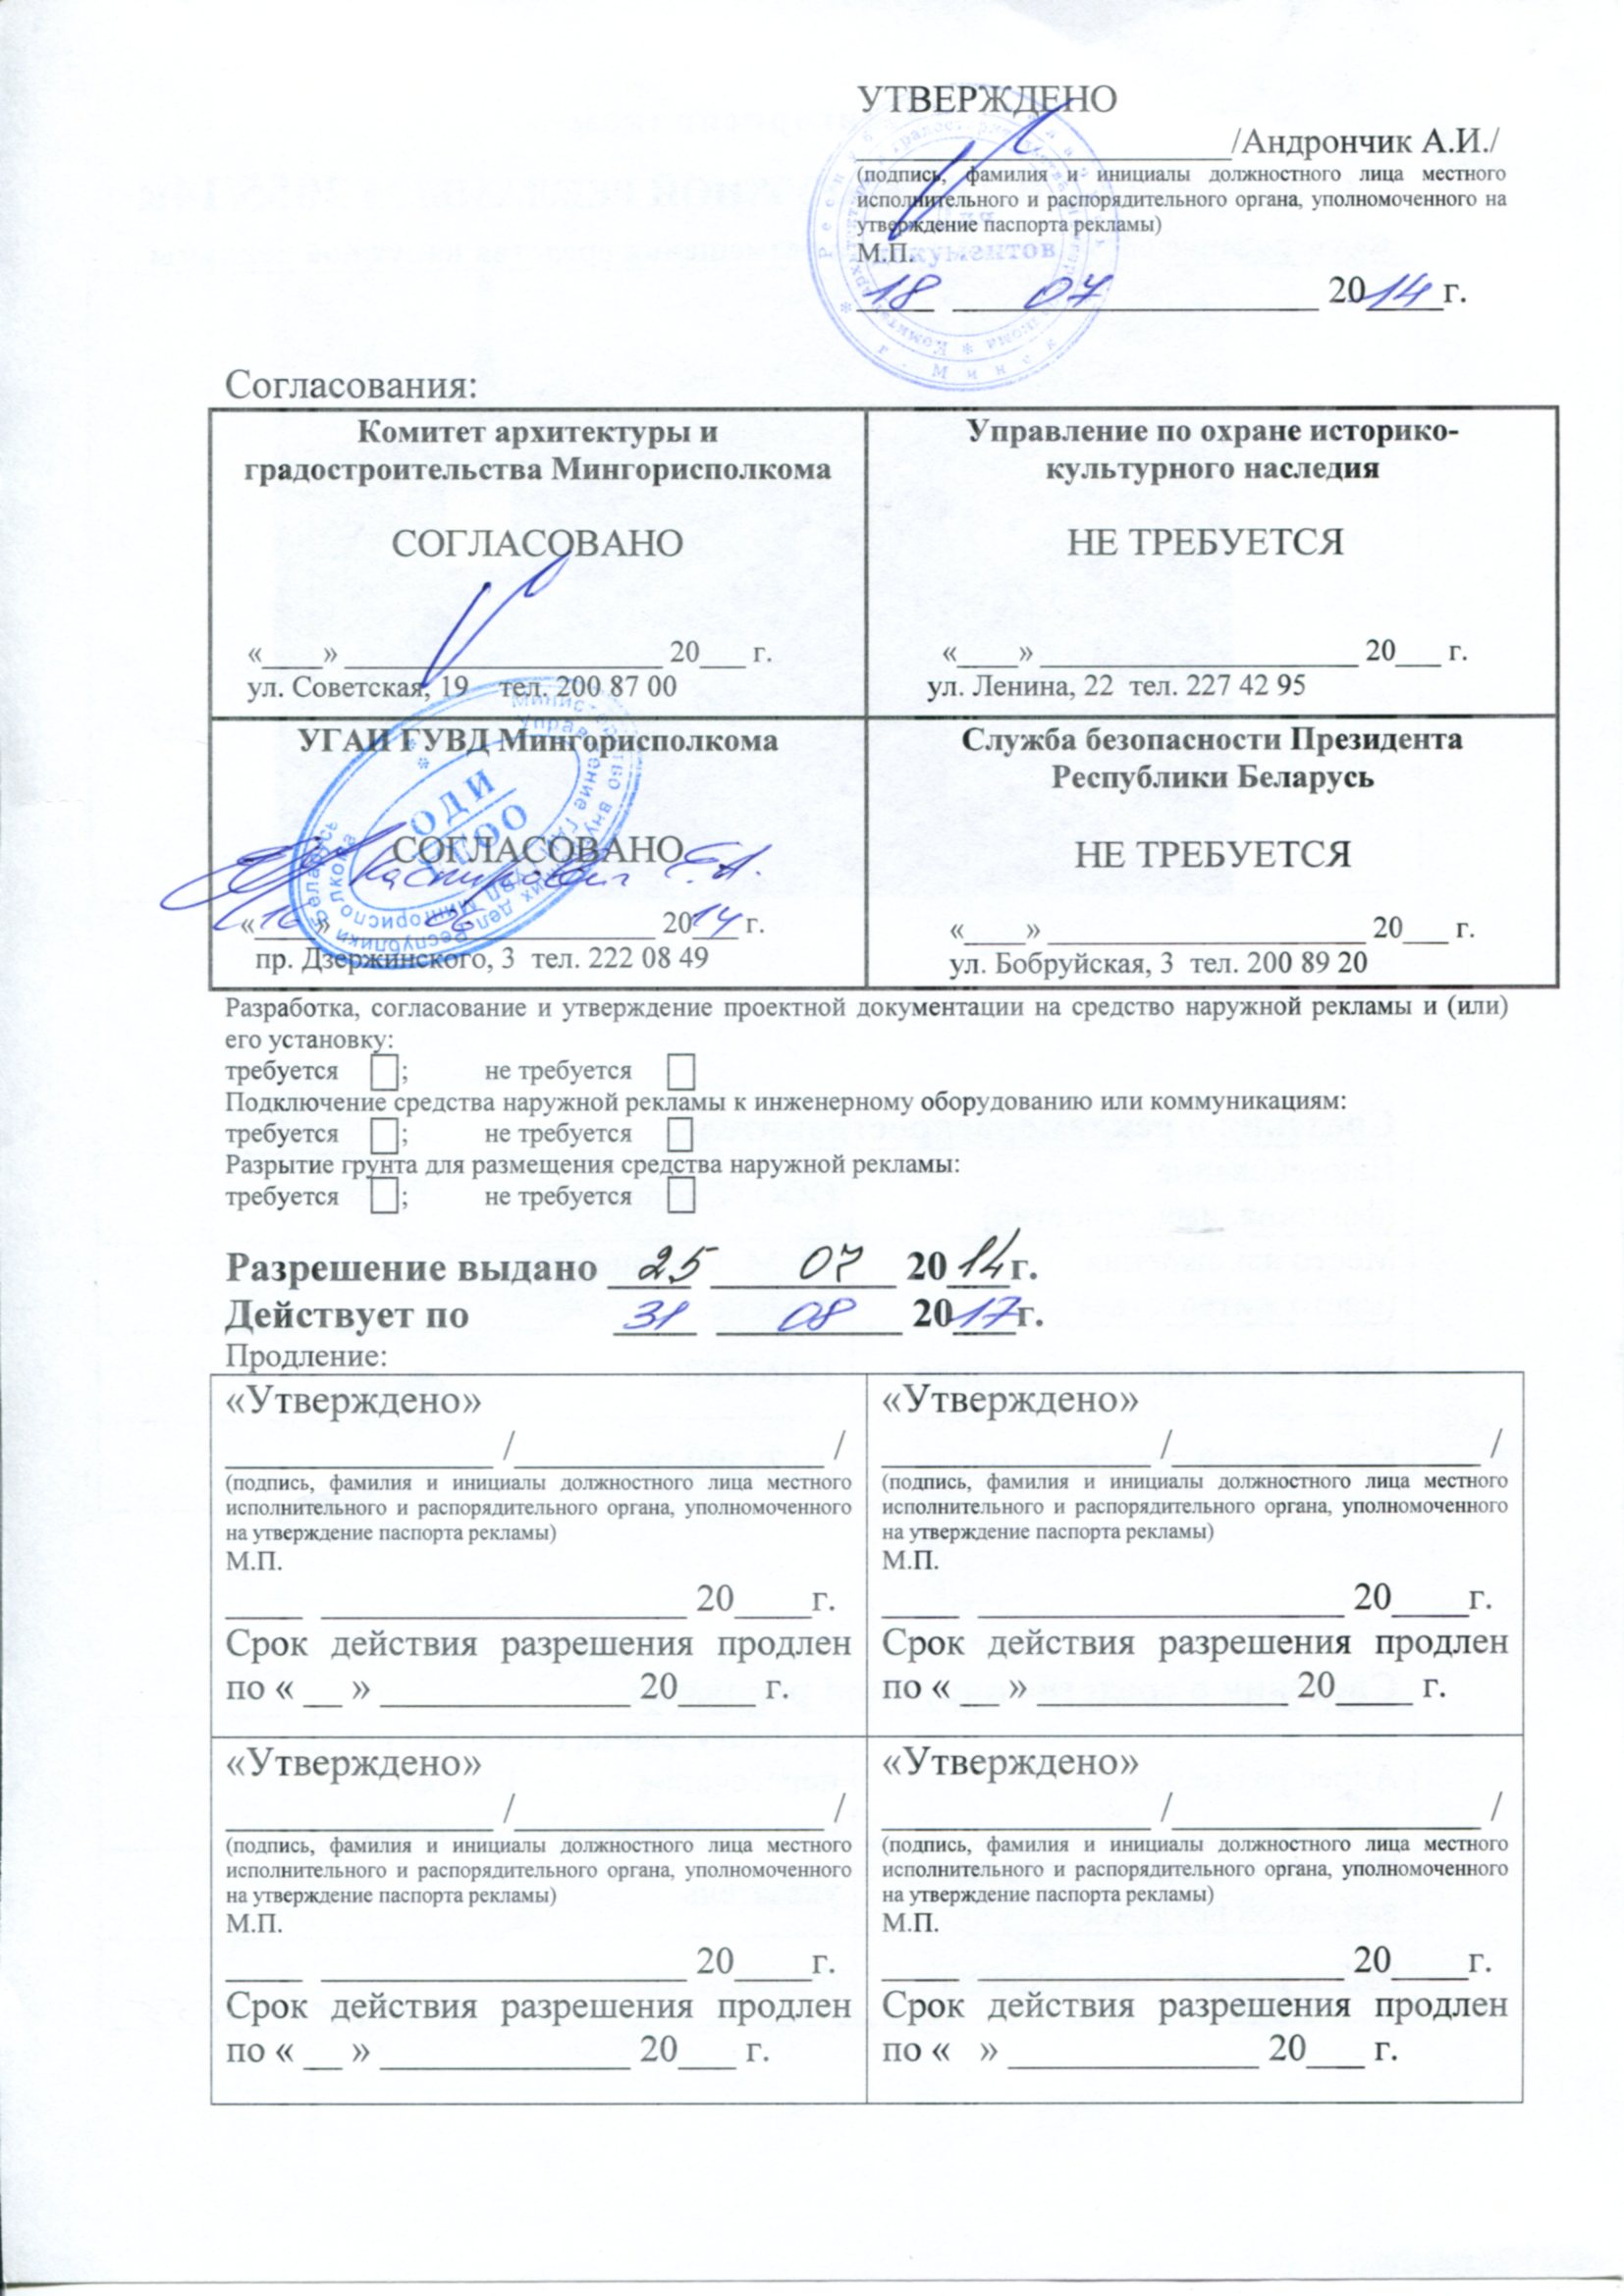 УТВЕРЖДЕНО
/Андрончик А.И./
(подпись, фамилия и инициалы должностного лица местного
исполнительного и распорядительного органа, уполномоченного на
утверждение паспорта рекламы)
М.П.
18 07 2014г.
Согласования:
Комитет архитектуры и
градостроительства Мингорисполкома
СОГЛАСОВАНО
«____» ____________________ 20___ г.
ул. Советская, 19 тел. 200 87 00
Управление по охране историко-
культурного наследия
НЕ ТРЕБУЕТСЯ
«____» ____________________ 20___ г.
ул. Ленина, 22 тел. 227 42 95
УГАИ ГУВД Мингорисполкома
ОДИ
СОГЛАСОВАНО
Е.А.
«16» 2014 г.
пр. Дзержинского, 3 тел. 222 08 49
Служба безопасности Президента
Республики Беларусь
НЕ ТРЕБУЕТСЯ
«____» ____________________ 20___ г.
ул. Бобруйская, 3 тел. 200 89 20
Разработка, согласование и утверждение проектной документации на средство наружной рекламы и (или)
его установку:
требуется ; не требуется
Подключение средства наружной рекламы к инженерному оборудованию или коммуникациям:
требуется ; не требуется
Разрытие грунта для размещения средства наружной рекламы:
требуется ; не требуется
Разрешение выдано 25 07 2014г.
Действует по 31 08 2017г.
Продление:
«Утверждено»
______________ /________________ /
(подпись, фамилия и инициалы должностного лица местного
исполнительного и распорядительного органа, уполномоченного
на утверждение паспорта рекламы)
М.П.
____ ___________________ 20____г.
Срок действия разрешения продлен
по « __ » _____________ 20____ г.
«Утверждено»
_______________ /________________ /
(подпись, фамилия и инициалы должностного лица местного
исполнительного и распорядительного органа, уполномоченного
на утверждение паспорта рекламы)
М.П.
____ ___________________ 20____г.
Срок действия разрешения продлен
по « __ » _____________ 20____ г.
«Утверждено»
______________ /________________ /
(подпись, фамилия и инициалы должностного лица местного
исполнительного и распорядительного органа, уполномоченного
на утверждение паспорта рекламы)
М.П.
____ ___________________ 20____г.
Срок действия разрешения продлен
по « __ » _____________ 20___ г.
«Утверждено»
_______________ /________________ /
(подпись, фамилия и инициалы должностного лица местного
исполнительного и распорядительного органа, уполномоченного
на утверждение паспорта рекламы)
М.П.
____ ___________________ 20____г.
Срок действия разрешения продлен
по « » _____________ 20___ г.